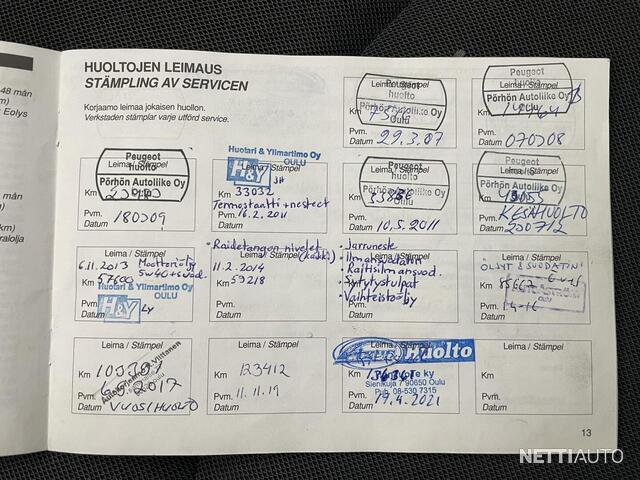 48 mån
km)
Eolys
HUOLTOJEN LEIMAUS
STÄMPLING AV SERVICEN
Korjaamo leimaa jokaisen huollon.
Verkstaden stämplar varje utförd service.
Leima / Stämpel
Peugeot
huolto
Pörhön Autoliike Oy
Oulu
Km
Pvm.
Datum
29.3.07
Leima / Stämpel
Peugeot
huolto
Pörhön Autoliike Oy
Oulu
Km
Pvm.
Datum
070508
Leima / Stämpel
Peugeot
huolto
Pörhön Autoliike Oy
Oulu
Km
Pvm.
Datum
180509
Huotari & Ylimartimo Oy
OULU
H&Y
Leima / Stämpel
JH
Km
33032
Termostaatti + nesteet
Pvm.
16.2.2011
Datum
Leima / Stämpel
Peugeot
huolto
Pörhön Autoliike Oy
Oulu
Km
Pvm.
Datum
10.5.2011
Leima / Stämpel
Peugeot
huolto
Pörhön Autoliike Oy
Oulu
Km
KESÄHUOLTO
Pvm.
Datum
230712
Leima / Stämpel
6.11.2013
Moottoriöljy
5w40 + suod.
Km
57600
Huotari & Ylimartimo Oy
OULU
H&Y
Pvm.
Datum
• Raidetangon nivelet
(kaikki)
Leima / Stämpel
11.2.2014
Km
59218
Pvm.
Datum
• Jarruneste
• ilmansuodatin
• Raitisilmansuod.
• Sytytystulpat
• Vaihteistoöljy
Leima / Stämpel
ÖLJYT & SUODATIN
Km
Pvm.
Datum
Leima / Stämpel
Km
Pvm.
2017
Datum
VUOSIHUOLTO
Leima / Stämpel
Km
123412
Pvm.
11.11.19
Datum
Huolto
Km
Sienikuja 7 90650 Oulu
Puh. 08-530 7315
Pvm.
Datum
19.4.2021
Leima / Stämpel
Km
Pvm.
Datum
13
NETTIAUTO